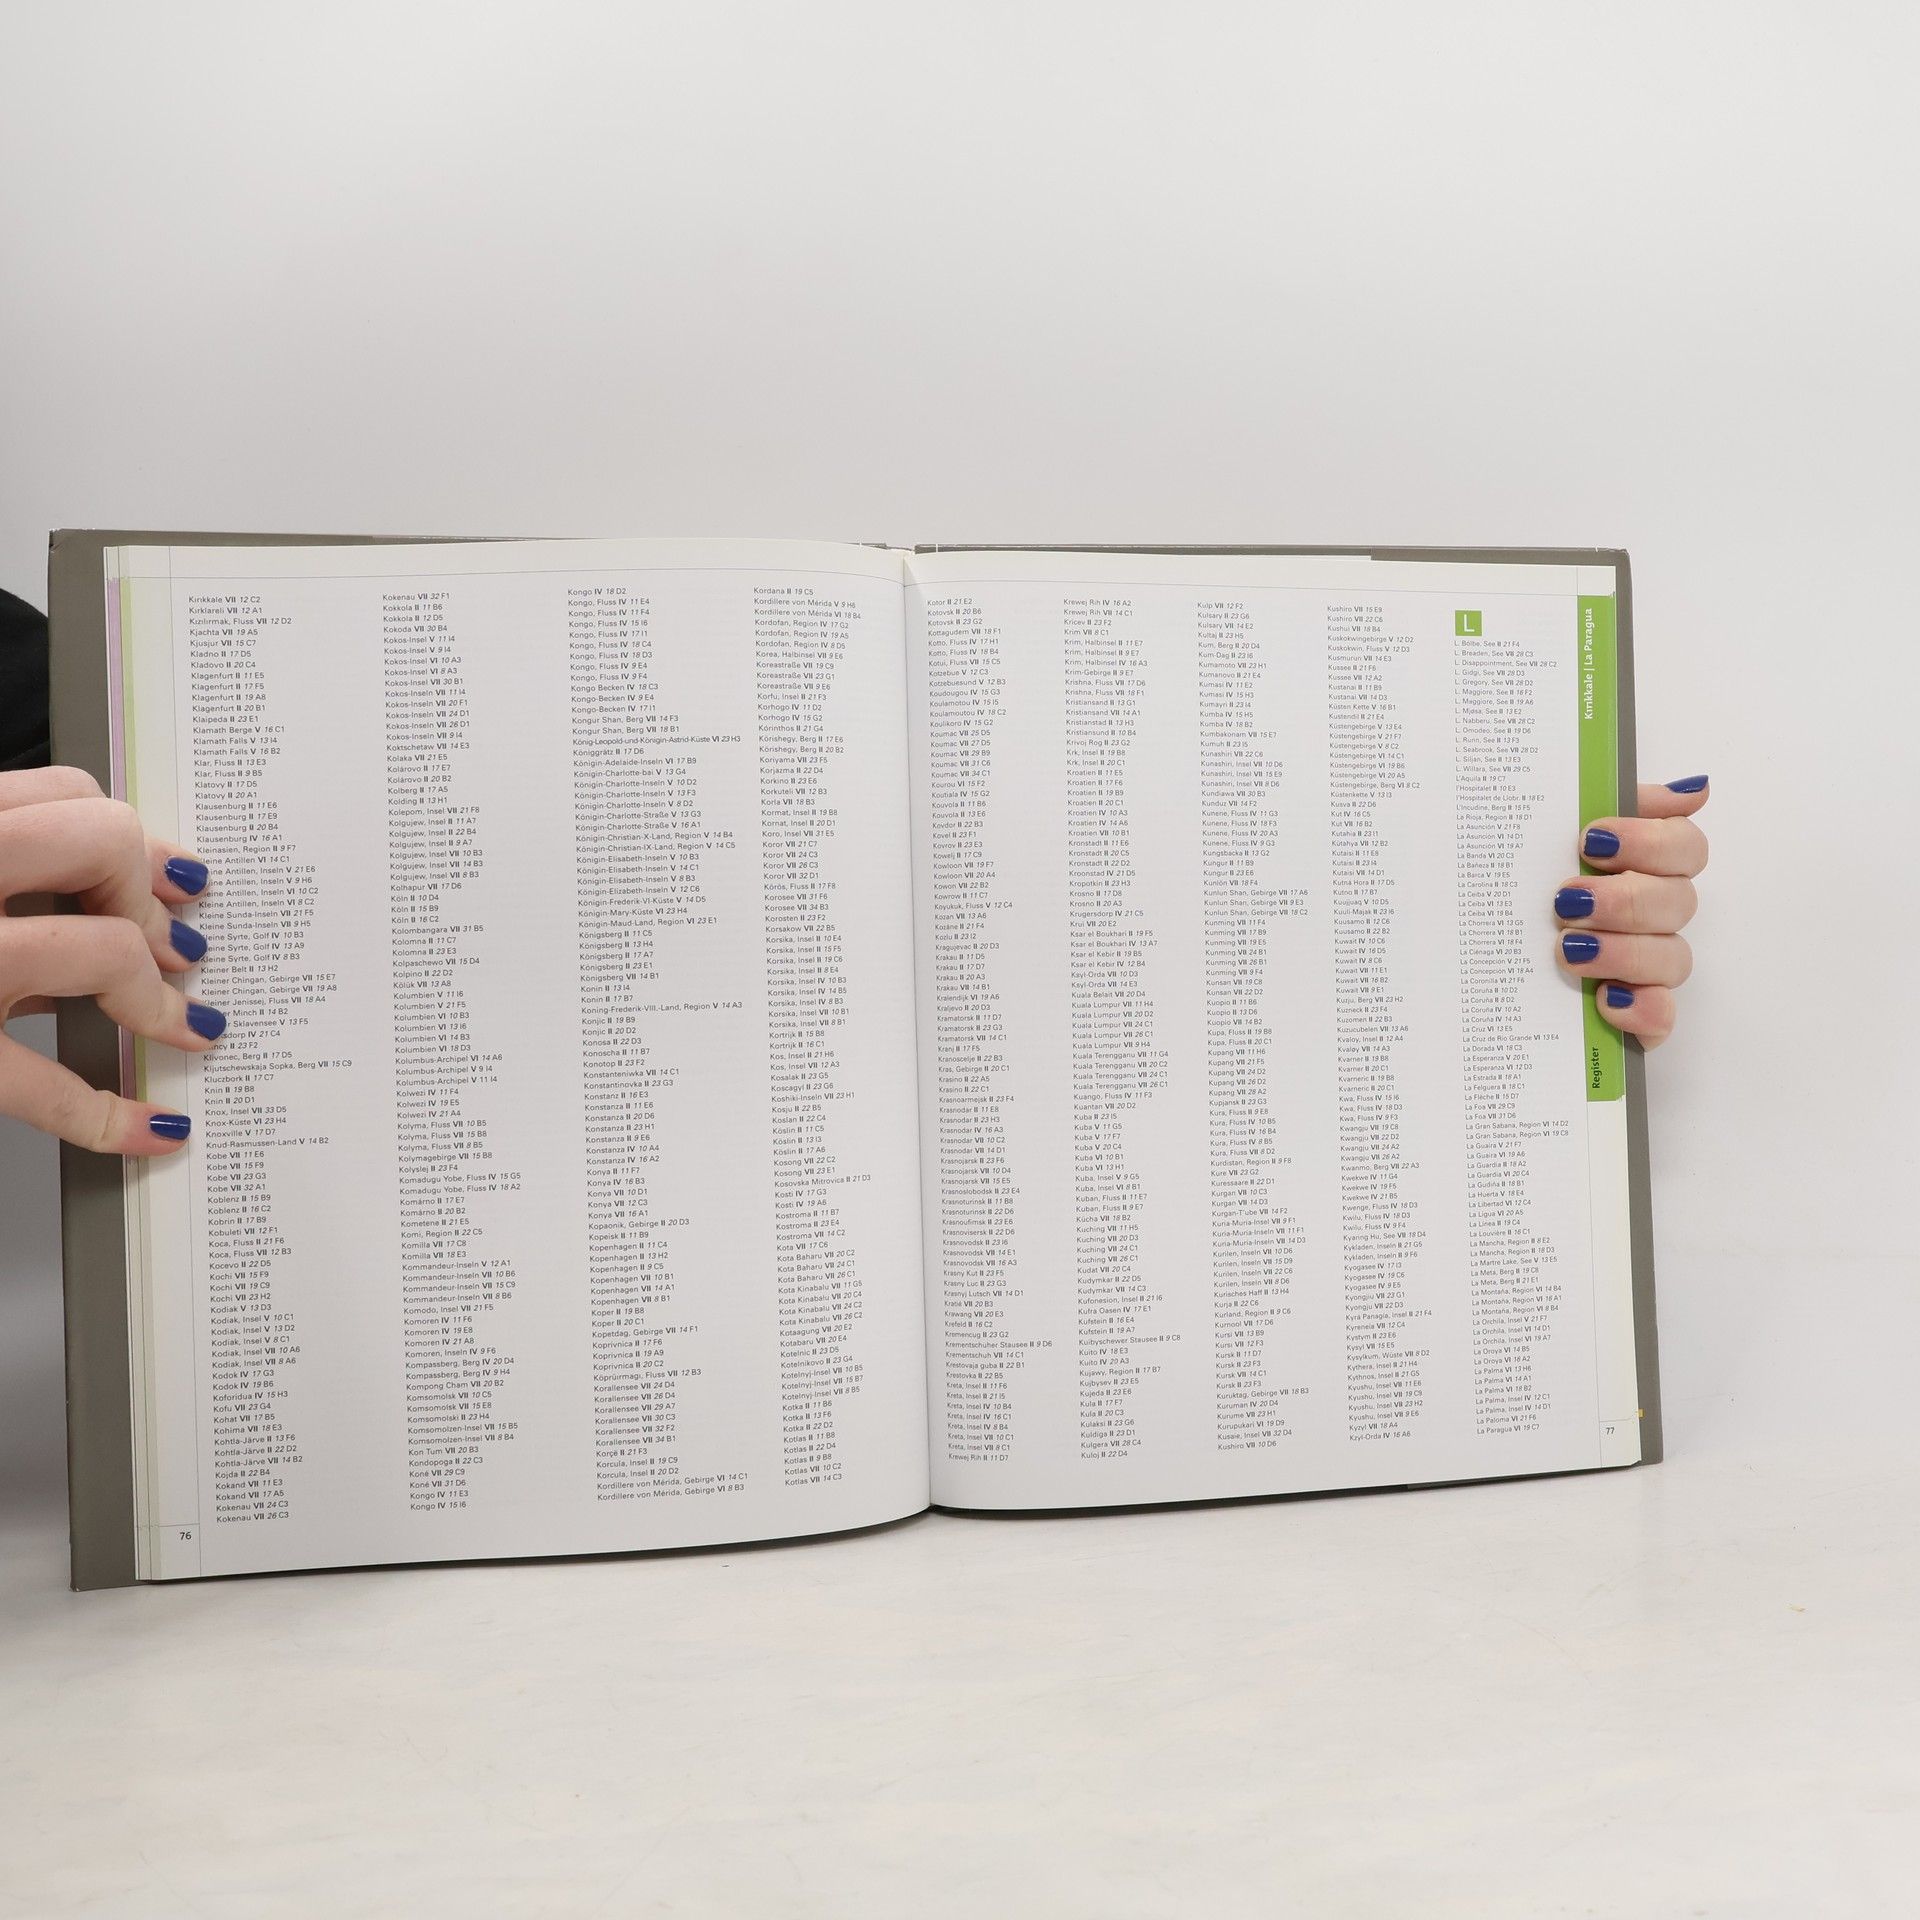 Kırıkkale VII 12 C2
Kırklareli VII 12 A1
Kızılırmak, Fluss VII 12 D2
Kjachta VII 19 A5
Kjusjur VII 15 C7
Kladno II 17 D5
Kladovo II 20 C4
Klagenfurt II 11 E5
Klagenfurt II 17 F5
Klagenfurt II 19 A8
Klagenfurt II 20 B1
Klaipeda II 23 E1
Klamath Berge V 16 C1
Klamath Falls V 13 I4
Klamath Falls V 16 B2
Klar, Fluss II 13 E3
Klar, Fluss II 9 B5
Klatovy II 17 D5
Klatovy II 20 A1
Klausenburg II 11 E6
Klausenburg II 17 E9
Klausenburg II 20 B4
Klausenburg IV 16 A1
Kleinasien, Region II 9 F7
Kleiner Belt II 13 H2
Kleiner Chingan, Gebirge VII 15 E7
Kleiner Chingan, Gebirge VII 19 A8
Klivonec, Berg II 17 D5
Kljutschewskaja Sopka, Berg VII 15 C9
Kluczbork II 17 C7
Knin II 19 B8
Knin II 20 D1
Knox, Insel VII 33 D5
Knox-Küste VI 23 H4
Knoxville V 17 D7
Knud-Rasmussen-Land V 14 B2
Kobe VII 11 E6
Kobe VII 15 F9
Kobe VII 23 G3
Kobe VII 32 A1
Koblenz II 15 B9
Koblenz II 16 C2
Kobrin II 17 B9
Kobuleti VII 12 F1
Koca, Fluss II 21 F6
Koca, Fluss VII 12 B3
Kocevo II 22 D5
Kochi VII 15 F9
Kochi VII 19 C9
Kochi VII 23 H2
Kodiak V 13 D3
Kodiak, Insel V 10 C1
Kodiak, Insel V 13 D2
Kodiak, Insel V 8 C1
Kodiak, Insel VII 10 A6
Kodiak, Insel VII 8 A6
Kodok IV 17 G3
Kodok IV 19 B6
Koforidua IV 15 H3
Kofu VII 23 G4
Kohat VII 17 B5
Kohima VII 18 E3
Kohtla-Järve II 13 F6
Kohtla-Järve II 22 D2
Kohtla-Järve VII 14 B2
Kojda II 22 B4
Kokand VII 11 E3
Kokand VII 17 A5
Kokenau VII 24 C3
Kokenau VII 26 C3
76
Kokenau VII 32 F1
Kokkola II 11 B6
Kokkola II 12 D5
Kokoda VII 30 B4
Kokos-Insel V 11 I4
Kokos-Insel V 9 I4
Kokos-Insel VI 10 A3
Kokos-Insel VI 8 A3
Kokos-Insel VII 30 B1
Kokos-Inseln VII 11 I4
Kokos-Inseln VII 20 F1
Kokos-Inseln VII 24 D1
Kokos-Inseln VII 26 D1
Kokos-Inseln VII 9 I4
Koktschetaw VII 14 E3
Kolaka VII 21 E5
Kolárovo II 17 E7
Kolárovo II 20 B2
Kolberg II 17 A5
Kolding II 13 H1
Kolepom, Insel VII 21 F8
Kolgujew, Insel II 11 A7
Kolgujew, Insel II 22 B4
Kolgujew, Insel II 9 A7
Kolgujew, Insel VII 10 B3
Kolgujew, Insel VII 14 B3
Kolgujew, Insel VII 8 B3
Kolhapur VII 17 D6
Köln II 10 D4
Köln II 15 B9
Köln II 16 C2
Kolombangara VII 31 B5
Kolomna II 11 C7
Kolomna II 23 E3
Kolpaschewo VII 15 D4
Kolpino II 22 D2
Kölük VII 13 A8
Kolumbien V 11 I6
Kolumbien V 21 F5
Kolumbien VI 10 B3
Kolumbien VI 13 I6
Kolumbien VI 14 B3
Kolumbien VI 18 D3
Kolumbus-Archipel VI 14 A6
Kolumbus-Archipel V 9 I4
Kolumbus-Archipel V 11 I4
Kolwezi IV 11 F4
Kolwezi IV 19 E5
Kolwezi IV 21 A4
Kolyma, Fluss VII 10 B5
Kolyma, Fluss VII 15 B8
Kolyma, Fluss VII 8 B5
Kolymagebirge VII 15 B8
Kolyslej II 23 F4
Komadugu Yobe, Fluss IV 15 G5
Komadugu Yobe, Fluss IV 18 A2
Komárno II 17 E7
Komárno II 20 B2
Kometene II 21 E5
Komi, Region II 22 C5
Komilla VII 17 C8
Komilla VII 18 E3
Kommandeur-Inseln V 12 A1
Kommandeur-Inseln VII 10 B6
Kommandeur-Inseln VII 15 C9
Kommandeur-Inseln VII 8 B6
Komodo, Insel VII 21 F5
Komoren IV 11 F6
Komoren IV 19 E8
Komoren IV 21 A8
Komoren, Inseln IV 9 F6
Kompassberg, Berg IV 20 D4
Kompassberg, Berg IV 9 H4
Kompong Cham VII 20 B2
Komsomolsk VII 10 C5
Komsomolsk VII 15 E8
Komsomolski II 23 H4
Komsomolzen-Insel VII 15 B5
Komsomolzen-Insel VII 8 B4
Kon Tum VII 20 B3
Kondopoga II 22 C3
Koné VII 29 C9
Koné VII 31 D6
Kongo IV 11 E3
Kongo IV 15 I6
Kongo IV 18 D2
Kongo, Fluss IV 11 E4
Kongo, Fluss IV 11 F4
Kongo, Fluss IV 15 I6
Kongo, Fluss IV 17 I1
Kongo, Fluss IV 18 C4
Kongo, Fluss IV 18 D3
Kongo, Fluss IV 9 E4
Kongo, Fluss IV 9 F4
Kongo Becken IV 18 C3
Kongo-Becken IV 9 E4
Kongo-Becken IV 17 I1
Kongur Shan, Berg VII 14 F3
Kongur Shan, Berg VII 18 B1
König-Leopold-und-Königin-Astrid-Küste VI 23 H3
Königgrätz II 17 D6
Königin-Adelaide-Inseln VI 17 B9
Königin-Charlotte-bai V 13 G4
Königin-Charlotte-Inseln V 10 D2
Königin-Charlotte-Inseln V 13 F3
Königin-Charlotte-Inseln V 8 D2
Königin-Charlotte-Straße V 13 G3
Königin-Charlotte-Straße V 16 A1
Königin-Christian-X-Land, Region V 14 B4
Königin-Christian-IX-Land, Region V 14 C5
Königin-Elisabeth-Inseln V 10 B3
Königin-Elisabeth-Inseln V 14 C1
Königin-Elisabeth-Inseln V 8 B3
Königin-Elizabeth-Inseln V 12 C6
Königin-Frederik-VI-Küste V 14 D5
Königin-Mary-Küste VI 23 H4
Königin-Maud-Land, Region VI 23 E1
Königsberg II 11 C5
Königsberg II 13 H4
Königsberg II 17 A7
Königsberg II 23 E1
Königsberg VII 14 B1
Konin II 13 I4
Konin II 17 B7
Koning-Frederik-VIII.-Land, Region V 14 A3
Konjic II 19 B9
Konjic II 20 D2
Konosa II 22 D3
Konoscha II 11 B7
Konotop II 23 F2
Konstanteniwka VII 14 C1
Konstantinovka II 23 G3
Konstanz II 16 E3
Konstanza II 11 E6
Konstanza II 20 D6
Konstanza II 23 H1
Konstanza II 9 E6
Konstanza IV 10 A4
Konstanza IV 16 A2
Konya II 11 F7
Konya IV 16 B3
Konya VII 10 D1
Konya VII 12 C3
Konya VII 16 A1
Kopaonik, Gebirge II 20 D3
Kopeisk II 11 B9
Kopenhagen II 11 C4
Kopenhagen II 13 H2
Kopenhagen II 9 C5
Kopenhagen VII 10 B1
Kopenhagen VII 14 A1
Kopenhagen VII 8 B1
Koper II 19 B8
Koper II 20 C1
Kopetdag, Gebirge VII 14 F1
Koprivnica II 17 F6
Koprivnica II 19 A9
Koprivnica II 20 C2
Köprüirmagı, Fluss VII 12 B3
Korallensee VII 24 D4
Korallensee VII 26 D4
Korallensee VII 29 A7
Korallensee VII 30 C3
Korallensee VII 32 F2
Korallensee VII 34 B1
Korçë II 21 F3
Korcula, Insel II 19 C9
Korcula, Insel II 20 D2
Kordillere von Mérida, Gebirge VI 14 C1
Kordillere von Mérida, Gebirge VI 8 B3
Kordana II 19 C5
Kordillere von Mérida V 9 H6
Kordillere von Mérida VI 18 B4
Kordofan, Region IV 17 G2
Kordofan, Region IV 19 A5
Kordofan, Region IV 8 D5
Korea, Halbinsel VII 9 E6
Koreastraße VII 19 C9
Koreastraße VII 23 G1
Koreastraße VII 9 E6
Korfu, Insel II 21 F3
Korhogo IV 11 D2
Korhogo IV 15 G2
Korinthos II 21 G4
Körishegy, Berg II 17 E6
Körishegy, Berg II 20 B2
Koriyama VII 23 F5
Korjazma II 22 D4
Korkino II 23 E6
Korkuteli VII 12 B3
Korla VII 18 B3
Kornat, Insel II 19 B8
Kornat, Insel II 20 D1
Koro, Insel VII 31 E5
Koror VII 21 C7
Koror VII 24 C3
Koror VII 26 C3
Koror VII 32 D1
Körös, Fluss II 17 F8
Korosee VII 31 F6
Korosee VII 34 B3
Korosten II 23 F2
Korsakow VII 22 B5
Korsika, Insel II 10 E4
Korsika, Insel II 15 F5
Korsika, Insel II 19 C6
Korsika, Insel II 8 E4
Korsika, Insel IV 10 B3
Korsika, Insel IV 14 B5
Korsika, Insel IV 8 B3
Korsika, Insel VII 10 B1
Korsika, Insel VII 8 B1
Kortrijk II 15 B8
Kortrijk II 16 C1
Kos, Insel II 21 H6
Kos, Insel VII 12 A3
Kosalak II 23 G5
Koscagyl II 23 G6
Koshiki-Inseln VII 23 H1
Kosju II 22 B5
Koslan II 22 C4
Köslin II 11 C5
Köslin II 13 I3
Köslin II 17 A6
Kosong VII 22 C2
Kosong VII 23 E1
Kosovska Mitrovica II 21 D3
Kosti IV 17 G3
Kosti IV 19 A6
Kostroma II 11 B7
Kostroma II 23 E4
Kostroma VII 14 C2
Kota VII 17 C6
Kota Baharu VII 20 C2
Kota Baharu VII 24 C1
Kota Baharu VII 26 C1
Kota Kinabalu VII 11 G5
Kota Kinabalu VII 20 C4
Kota Kinabalu VII 24 C2
Kota Kinabalu VII 26 C2
Kotaagung VII 20 E2
Kotabaru VII 20 E4
Kotelnic II 23 D5
Kotelnikovo II 23 G4
Kotelnyj-Insel VII 10 B5
Kotelnyj-Insel VII 15 B7
Kotelnyj-Insel VII 8 B5
Kotka II 11 B6
Kotka II 13 F6
Kotka II 22 D2
Kotlas II 11 B8
Kotlas II 22 D4
Kotlas II 9 B8
Kotlas VII 10 C2
Kotlas VII 14 C3
Kotor II 21 E2
Kotovsk II 20 B6
Kotovsk II 23 G2
Kottagudem VII 18 F1
Kotto, Fluss IV 17 H1
Kotto, Fluss IV 18 B4
Kotui, Fluss VII 15 C5
Kotzebue V 12 C3
Kotzebuesund V 12 B3
Koudougou IV 15 G3
Koulamotou IV 15 I5
Koulamoutou IV 18 C2
Koulikoro IV 15 G2
Koumac VII 25 D5
Koumac VII 27 D5
Koumac VII 29 B9
Koumac VII 31 C6
Koumac VII 34 C1
Kourou VI 15 F2
Koutiala IV 15 G2
Kouvola II 11 B6
Kouvola II 13 E6
Kovdor II 22 B3
Kovel II 23 F1
Kovrov II 23 E3
Kowelj II 17 C9
Kowloon VII 19 F7
Kowloon VII 20 A4
Kowon VII 22 B2
Kowrow II 11 C7
Koyukuk, Fluss V 12 C4
Kozan VII 13 A6
Kozáne II 21 F4
Kozlu II 23 I2
Kragujevac II 20 D3
Krakau II 11 D5
Krakau II 17 D7
Krakau II 20 A3
Krakau VII 14 B1
Kralendijk VI 19 A6
Kraljevo II 20 D3
Kramatorsk II 11 D7
Kramatorsk II 23 G3
Kramatorsk VII 14 C1
Kranj II 17 F5
Kranoscelje II 22 B3
Kras, Gebirge II 20 C1
Krasino II 22 A5
Krasino II 22 C1
Krasnoarmejsk II 23 F4
Krasnodar II 11 E8
Krasnodar II 23 H3
Krasnodar IV 16 A3
Krasnodar VII 10 C2
Krasnodar VII 14 D1
Krasnojarsk II 23 F6
Krasnojarsk VII 10 D4
Krasnojarsk VII 15 E5
Krasnoslobodsk II 23 E4
Krasnoturinsk II 11 B8
Krasnoturinsk II 22 D6
Krasnoufimsk II 23 E6
Krasnovisersk II 22 D6
Krasnovodsk II 23 I6
Krasnovodsk VII 14 E1
Krasnovodsk VII 16 A3
Krasny Kut II 23 F5
Krasny Luc II 23 G3
Krasnyj Lutsch VII 14 D1
Kratié VII 20 B3
Krawang VII 20 E3
Krefeld II 16 C2
Kremencug II 23 G2
Krementschuher Stausee II 9 D6
Krementschuh VII 14 C1
Krestovaja guba II 22 B1
Krestovka II 22 B5
Kreta, Insel II 11 F6
Kreta, Insel II 21 I5
Kreta, Insel IV 10 B4
Kreta, Insel IV 16 C1
Kreta, Insel IV 8 B4
Kreta, Insel VII 10 C1
Kreta, Insel VII 8 C1
Krewej Rih II 11 D7
Krewej Rih IV 16 A2
Krewej Rih VII 14 C1
Kricev II 23 F2
Krim VII 8 C1
Krim, Halbinsel II 11 E7
Krim, Halbinsel II 9 E7
Krim, Halbinsel IV 16 A3
Krim-Gebirge II 9 E7
Krishna, Fluss VII 17 D6
Krishna, Fluss VII 18 F1
Kristiansand II 13 G1
Kristiansand VII 14 A1
Kristianstad II 13 H3
Kristiansund II 10 B4
Krivoj Rog II 23 G2
Krk, Insel II 19 B8
Krk, Insel II 20 C1
Kroatien II 11 E5
Kroatien II 17 F6
Kroatien II 19 B9
Kroatien II 20 C1
Kroatien IV 10 A3
Kroatien IV 14 A6
Kroatien VII 10 B1
Kronstadt II 11 E6
Kronstadt II 20 C5
Kronstadt II 22 D2
Kroonstad IV 21 D5
Kropotkin II 23 H3
Krosno II 17 D8
Krosno II 20 A3
Krugersdorp IV 21 C5
Krui VII 20 E2
Ksar el Boukhari II 19 F5
Ksar el Boukhari IV 13 A7
Ksar el Kebir II 19 B5
Ksar el Kebir IV 12 B4
Ksyl-Orda VII 10 D3
Ksyl-Orda VII 14 E3
Kuala Belait VII 20 D4
Kuala Lumpur VII 11 H4
Kuala Lumpur VII 20 D2
Kuala Lumpur VII 24 C1
Kuala Lumpur VII 26 C1
Kuala Lumpur VII 9 H4
Kuala Terengganu VII 11 G4
Kuala Terengganu VII 20 C2
Kuala Terengganu VII 24 C1
Kuala Terengganu VII 26 C1
Kuango, Fluss IV 11 F3
Kuantan VII 20 D2
Kuba II 23 I5
Kuba V 11 G5
Kuba V 17 F7
Kuba V 20 C4
Kuba VI 10 B1
Kuba VI 13 H1
Kuba, Insel V 9 G5
Kuba, Insel VI 8 B1
Kuban, Fluss II 11 E7
Kuban, Fluss II 9 E7
Kücha VII 18 B2
Kuching VII 11 H5
Kuching VII 20 D3
Kuching VII 24 C1
Kuching VII 26 C1
Kudat VII 20 C4
Kudymkar II 22 D5
Kudymkar VII 14 C3
Kufonesion, Insel II 21 I6
Kufra Oasen IV 17 E1
Kufstein II 16 E4
Kufstein II 19 A7
Kuibyschewer Stausee II 9 C8
Kuito IV 18 E3
Kuito IV 20 A3
Kujawy, Region II 17 B7
Kujbysev II 23 E5
Kujeda II 23 E6
Kula II 17 F7
Kula II 20 C3
Kulaksi II 23 G6
Kuldiga II 23 D1
Kulgera VII 28 C4
Kuloj II 22 D4
Kulp VII 12 F2
Kulsary II 23 G6
Kulsary VII 14 E2
Kultaj II 23 H5
Kum, Berg II 20 D4
Kum-Dag II 23 I6
Kumamoto VII 23 H1
Kumanovo II 21 E4
Kumasi IV 11 E2
Kumasi IV 15 H3
Kumayri II 23 I4
Kumba IV 15 H5
Kumba IV 18 B2
Kumbakonam VII 15 E7
Kumuh II 23 I5
Kunashiri VII 22 C6
Kunashiri, Insel VII 10 D6
Kunashiri, Insel VII 15 E9
Kunashiri, Insel VII 8 D6
Kundiawa VII 30 B3
Kunduz VII 14 F2
Kunene, Fluss IV 11 G3
Kunene, Fluss IV 18 F3
Kunene, Fluss IV 20 A3
Kunene, Fluss IV 9 G3
Kungsbacka II 13 G2
Kungur II 11 B9
Kungur II 23 E6
Kunlön VII 18 F4
Kunlun Shan, Gebirge VII 17 A6
Kunlun Shan, Gebirge VII 9 E3
Kunlun Shan, Gebirge VII 18 C2
Kunming VII 11 F4
Kunming VII 17 B9
Kunming VII 19 E5
Kunming VII 24 B1
Kunming VII 26 B1
Kunming VII 9 F4
Kunsan VII 19 C8
Kunsan VII 22 D2
Kuopio II 11 B6
Kuopio II 13 D6
Kuopio VII 14 B2
Kupa, Fluss II 19 B8
Kupa, Fluss II 20 C1
Kupang VII 11 H6
Kupang VII 21 F5
Kupang VII 24 D2
Kupang VII 26 D2
Kupang VII 28 A2
Kupjansk II 23 G3
Kura, Fluss II 9 E8
Kura, Fluss IV 10 B5
Kura, Fluss IV 16 B4
Kura, Fluss IV 8 B5
Kura, Fluss VII 8 D2
Kurdistan, Region II 9 F8
Kure VII 23 G2
Kuressaare II 22 D1
Kurgan VII 10 C3
Kurgan VII 14 D3
Kurgan-T'ube VII 14 F2
Kuria-Muria-Insel VII 9 F1
Kuria-Muria-Inseln VII 11 F1
Kuria-Muria-Inseln VII 14 D3
Kurilen, Inseln VII 10 D6
Kurilen, Inseln VII 15 D9
Kurilen, Inseln VII 22 C6
Kurilen, Inseln VII 8 D6
Kurisches Haff II 13 H4
Kurja II 22 C6
Kurland, Region II 9 C6
Kurnool VII 17 D6
Kursi VII 13 B9
Kursi VII 12 F3
Kursk II 11 D7
Kursk II 23 F3
Kursk VII 14 C1
Kursk II 23 F3
Kuruktag, Gebirge VII 18 B3
Kuruman IV 20 D4
Kurume VII 23 H1
Kurupukari VI 19 D9
Kusaie, Insel VII 32 D4
Kushiro VII 10 D6
Kushiro VII 15 E9
Kushiro VII 22 C6
Kushui VII 18 B4
Kuskokwingebirge V 12 D2
Kuskokwin, Fluss V 12 D3
Kusmurun VII 14 E3
Kussee II 21 F6
Kussee VII 12 A2
Kustanai II 11 B9
Kustanai VII 14 D3
Küsten Kette V 16 B1
Kustendil II 21 E4
Küstengebirge V 13 E4
Küstengebirge V 21 F7
Küstengebirge V 8 C2
Küstengebirge VI 14 C1
Küstengebirge VI 19 B6
Küstengebirge VI 20 A5
Küstengebirge, Berg VI 8 C2
Küstenkette V 13 I3
Kusva II 22 D6
Kut IV 16 C5
Kut VII 16 B2
Kutahia II 23 I1
Kütahya VII 12 B2
Kutaisi II 11 E8
Kutaisi II 23 I4
Kutaisi VII 14 D1
Kutna Hora II 17 D5
Kutno II 17 B7
Kuujjuaq V 10 D5
Kuuli-Majak II 23 I6
Kuusamo II 12 C6
Kuusamo II 22 B2
Kuwait IV 10 C6
Kuwait IV 16 D5
Kuwait IV 8 C6
Kuwait VII 11 E1
Kuwait VII 16 B2
Kuwait VII 9 E1
Kuzju, Berg VII 23 H2
Kuzneck II 23 F4
Kuzomen II 22 B3
Kuzucubelen VII 13 A6
Kvaloy, Insel II 12 A4
Kvaløy VII 14 A3
Kvarner II 19 B8
Kvarner II 20 C1
Kvarneric II 19 B8
Kvarneric II 20 C1
Kwa, Fluss IV 15 I6
Kwa, Fluss IV 18 D3
Kwa, Fluss IV 9 F3
Kwangju VII 19 C8
Kwangju VII 22 D2
Kwangju VII 24 A2
Kwangju VII 26 A2
Kwanmo, Berg VII 22 A3
Kwekwe IV 11 G4
Kwekwe IV 19 F5
Kwekwe IV 21 B5
Kwenge, Fluss IV 18 D3
Kwilu, Fluss IV 18 D3
Kwilu, Fluss IV 9 F4
Kyaring Hu, See VII 18 D4
Kykladen, Inseln II 21 G5
Kykladen, Inseln II 9 F6
Kyogasee IV 17 I3
Kyogasee IV 19 C6
Kyogasee IV 9 E5
Kyongju VII 23 G1
Kyongju VII 22 D3
Kyrá Panagía, Insel II 21 F4
Kyreneia VII 12 C4
Kystym II 23 E6
Kysyl VII 15 E5
Kysylkum, Wüste VII 8 D2
Kythera, Insel II 21 H4
Kythnos, Insel II 21 G5
Kyushu, Insel VII 11 E6
Kyushu, Insel VII 19 C9
Kyushu, Insel VII 23 H2
Kyushu, Insel VII 9 E6
Kyzyl VII 18 A4
Kzyl-Orda IV 16 A6
L
L. Bolbe, See II 21 F4
L. Breaden, See VII 28 C3
L. Disappointment, See VII 28 C2
L. Gidgi, See VII 28 D3
L. Gregory, See VII 28 D2
L. Maggiore, See II 16 F2
L. Maggiore, See II 19 A6
L. Mjøsa, See II 13 E2
L. Nabberu, See VII 28 C2
L. Omodeo, See II 19 D6
L. Runn, See II 13 F3
L. Seabrook, See VII 28 D2
L. Siljan, See II 13 E3
L. Willara, See VII 29 C5
L'Aquila II 19 C7
l'Hospitalet II 10 E3
l'Hospitalet de Llobr. II 18 E2
L'Incudine, Berg II 15 F5
La Rioja, Region II 18 D1
La Asunción V 21 F8
La Asunción VI 14 D1
La Asunción VI 19 A7
La Banda VI 20 C3
La Bañeza II 18 B1
La Barca V 19 E5
La Carolina II 18 C3
La Ceiba V 20 D1
La Ceiba VI 13 E3
La Ceiba VI 19 B4
La Chorrera VI 13 G5
La Chorrera VI 18 B1
La Chorrera VI 18 F4
La Ciénaga VI 20 B3
La Concepción V 21 F5
La Concepción VI 18 A4
La Coronilla VI 21 F6
La Coruña II 10 D2
La Coruña II 8 D2
La Coruña IV 10 A2
La Coruña IV 14 A3
La Cruz VI 13 E5
La Cruz de Rio Grande VI 13 E4
La Dorada VI 18 C3
La Esperanza V 20 E1
La Esperanza VI 12 D3
La Estrada II 18 A1
La Felguera II 18 C1
La Flèche II 15 D7
La Foa VII 29 C9
La Foa VII 31 D6
La Gran Sabana, Region VI 14 D2
La Gran Sabana, Region VI 19 C8
La Guaira V 21 F7
La Guaira VI 19 A6
La Guardia II 18 A2
La Guardia VI 20 C4
La Gudiña II 18 B1
La Huerta V 18 E4
La Libertad VI 12 C4
La Ligua VI 20 A5
La Línea II 19 C4
La Louvière II 16 C1
La Mancha, Region II 8 E2
La Mancha, Region II 18 D3
La Martre Lake, See V 13 E5
La Meta, Berg II 19 C8
La Meta, Berg II 21 E1
La Montaña, Region VI 14 B4
La Montaña, Region VI 16 A1
La Montaña, Region VI 8 B4
La Orchila, Insel V 21 F7
La Orchila, Insel VI 14 D1
La Orchila, Insel VI 19 A7
La Oroya VI 14 B5
La Oroya VI 16 A2
La Palma VI 13 H6
La Palma VI 14 A1
La Palma VI 18 B2
La Palma, Insel IV 12 C1
La Palma, Insel IV 14 D1
La Paloma VI 21 F6
La Paragua VI 19 C7
Kırıkkale | La Paragua
Register
77